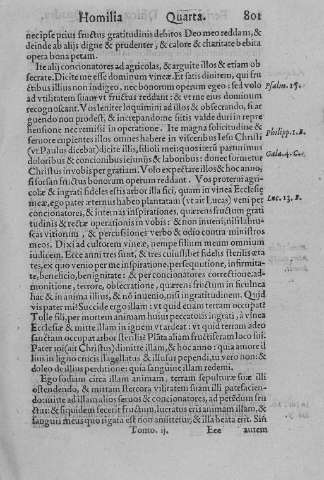 Homilia Quarta. 801
nec ipse prius fructus gratitudinis debitos Deo meo reddam, &
deinde ab alijs digne & prudenter, & calore & charitate
opera bona petam.
Ite alij concionatores ad agricolas, & arguite illos & etiam ob
secrate. Dicite me esse dominum vineæ. Et satis divitem, qui
ctibus illius non indigeo, nec bonorum operum egeo: sed volo
ad vtilitatem suam vt fructus reddant: & verne eius dominum
recognoscant. Vos leniter loquimini ad illos & obsecrando, si ar
guendo non prodest, & increpando
hensione nec remissi in operatione. Ite magna solicitudine &
feruore cupientes illos omnes habere in visceribus Iesu Christi
(vt Paulus dicebat) dicite illis, filioli mei quos iterum parturimus
doloribus & concionibus ieiunijs & laboribus: donec formetur
Christus in vobis per gratiam. Volo expectare illos & hoc anno,
si forsan fructus bonorum operum reddant. Vos proterui agri-
colæ & ingrati fideles estis arbor illa fici, quam in vinea Ecclesiæ
meæ, ego pater æternus habeo plantatam (vt ait Lucas) veni per
concionatores, & internas inspirationes, quærens fructum grati
tudinis & rectæ operationis in vobis: & non inveni, nisi
scas vitiorum, & percussionei verbo & odio contra ministros
meos. Dixi ad cultorem vineæ, nempe filium meum omnium
iudicem. Ecce anni tres sunt, & tres
tes, ex quo venio per me inspiratione, persequutione, infirmita-
te, beneficio, benignitate: & per concionatores correctione, ad-
monitione, terrore, oblecratione, quærens fructum in ficulnea
hac & in anima illius, & nō inuenio, nisi ingratitudinem. Quid
vis pater mi? Succide ergo illam: vt quid etiam terram occupat
Tolle fili, per mortem animam huius peccatoris ingrati, à vinea
Ecclesiæ & mitte illam in ignem vt ardeat: vt quid terram adeo
sanctam occupat arbor sterilis? Plāta aliam fructiferam loco sui.
Pater mi (ait Christus) dimitte illam, & hoc anno: quia amore il
lius in ligno crucis flagellatus & illusus pependi, tu vero non: &
doleo de illius perditione: quia sanguine illam redemi.
Ego fodium circa illam animam, terram sepulturæ suæ illi
ostendendo, & mittam stercora vilitatem suam illi patefacien-
do: mitte ad illam alios seruos & concionatores, ad petēdum fru
ctus: & siquidem fecerit fructum, lucratus eris animam illam, &
sanguis meus quo rigata est non amittetur, & illa beata erit. Sin
Tomo. ij. Eee autem
Psalm. 15.
Philipp. 1. B.
Gala. 4. C.
Luc. 13. B.